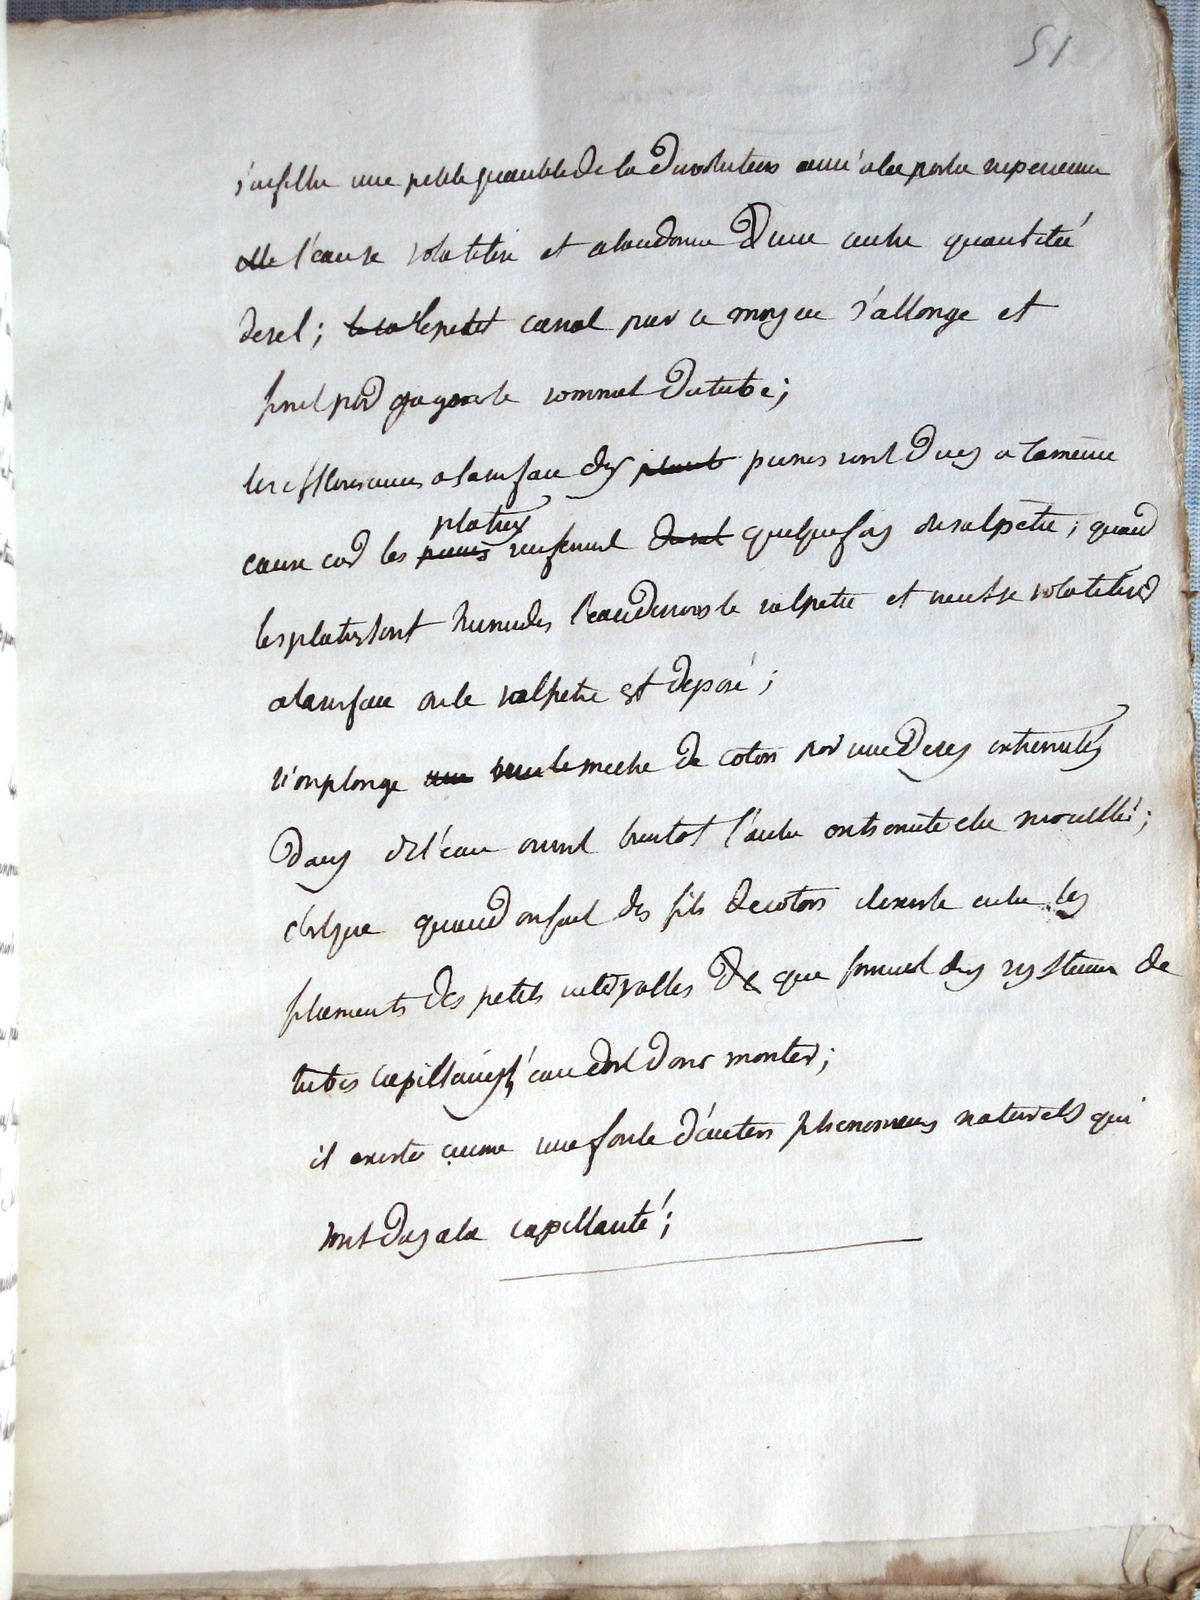 51
s'infiltre une petite quantité de la dissolution arrivé a la partie superieure
elle l'eau se volatilise et abandonne d'une autre quantité
de sel; le petit canal par ce moyen s'allonge et
finit par gagner le sommet du tube;
les efflorescences a la surface des pierres sont dues a la même
cause car les platres renferment quelquefois du salpetre; quand
les platres sont humides l'eau dissous le salpetre et vient se volatiliser
a la surface ou le salpetre est deposé;
si on plonge une meche de coton par une de ses extremités
dans de l'eau on voit bientot l'autre extremité etre mouillé;
c'est que quand on fait des fils de coton il existe entre les
filaments des petits intervalles que forment des systemes de
tubes capillaires, l'eau doit donc monter;
il existe une foule d'autres phenomenes naturels qui
sont dus a la capillarité;